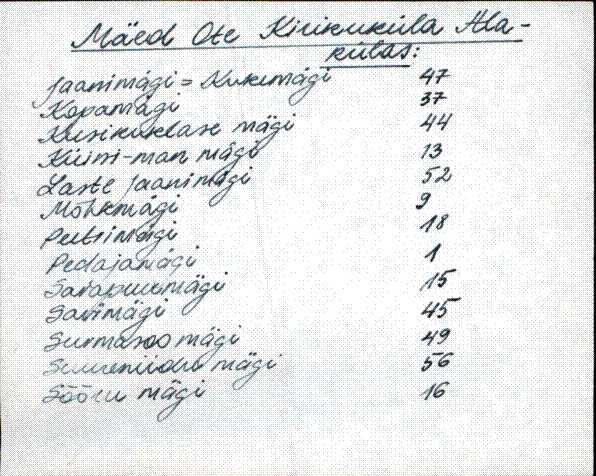 Mäed Ote Kirikuküla Ala-
külas:
Jaanimägi = Kukemägi 47
Kopamägi 37
Kusikuklase mägi 44
Küini-man mägi 13
Laste Jaanimägi 52
Mõhkmägi 9
Peetrimägi 18
Pedajamägi 1
Sarapuumägi 15
Savimägi 45
Surmasoo mägi 49
Suureniidu mägi 56
Sõõru mägi 16